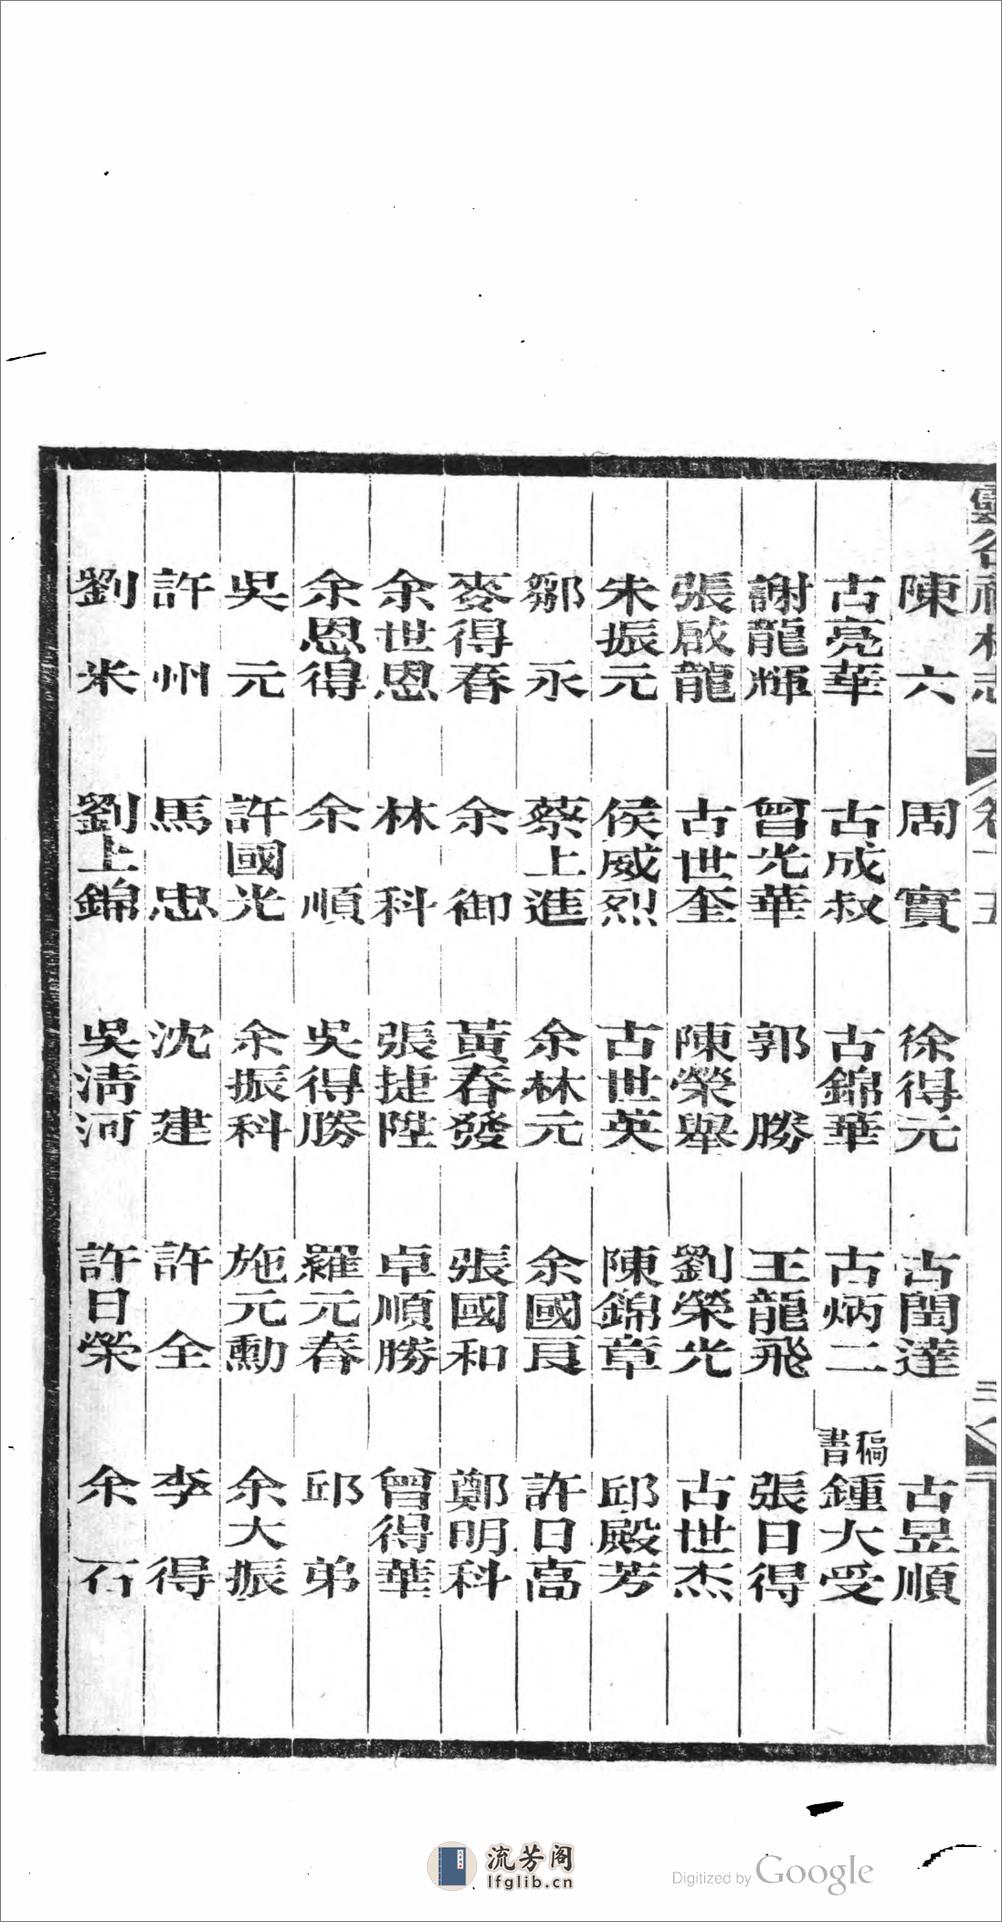 陳六　周實　徐得元　古閏達　古昱順
古亮華　古成叔　古錦華　古炳二　稿書鍾大受
謝龍輝　曾光華　郭勝　王龍飛　張日得
張啟龍　古世奎　陳榮舉　劉榮光　古世杰
朱振元　侯威烈　古世英　陳錦章　邱殿芳
鄒永　蔡上進　余林元　余國良　許日高
麥得春　余御　黃春發　張國和　鄭明科
余世恩　林科　張捷陞　卓順勝　曾得華
余恩得　余順　吳得勝　羅元春　邱弟
吳元　許國光　余振科　施元勳　余大振
許州　馬忠　沈建　許全　李得
劉米　劉上錦　吳淸河　許日榮　余石
流芳阁
lfglib.cn
Digitized by Google